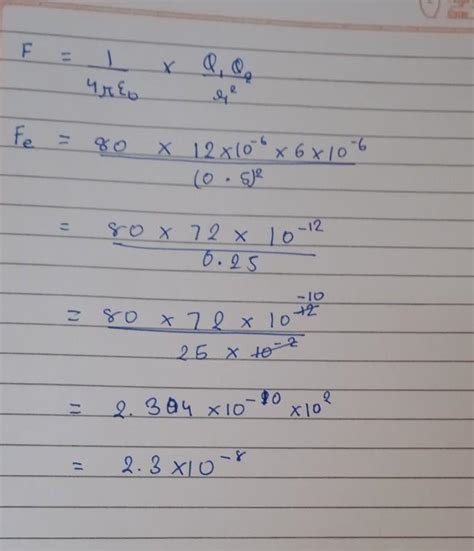 F = 1/4πε₀ × Q₁Q₂/r²
Fe = 80 × 12×10⁻⁶ × 6×10⁻⁶ / (0.5)²
= 80 × 72 × 10⁻¹² / 0.25
= 80 × 72 × 10⁻¹⁰ / 25 ×
= 2.304 ×10⁻¹⁰ ×10²
= 2.3 ×10⁻⁸